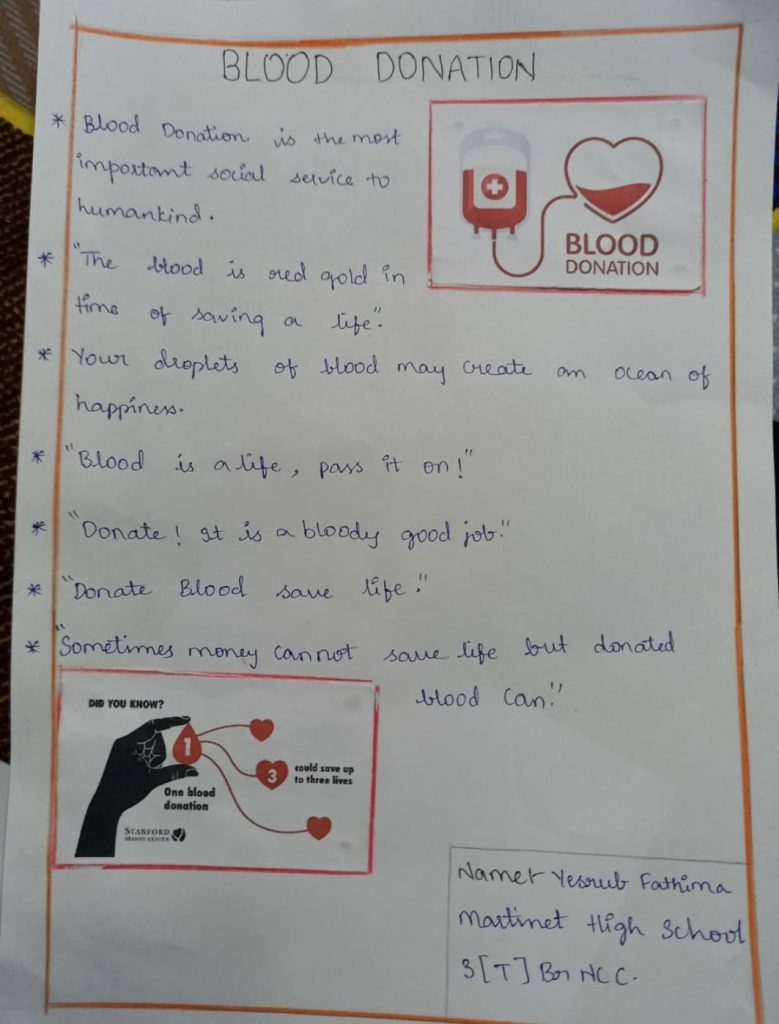 BLOOD DONATION
* Blood Donation is the most
important social service to
humankind.
BLOOD
DONATION
* "The blood is red gold in
time of saving a life".
* Your droplets of blood may create an ocean of
happiness.
* "Blood is a life, pass it on!"
* "Donate! It is a bloody good job."
* "Donate Blood save life."
* "Sometimes money cannot save life but donated
blood can."
DID YOU KNOW?
1
3
could save up
to three lives
One blood
donation
STANFORD
BLOOD CENTER
Name:- Yesrub Fathima
Martinet High School
3[T] Bn NCC.